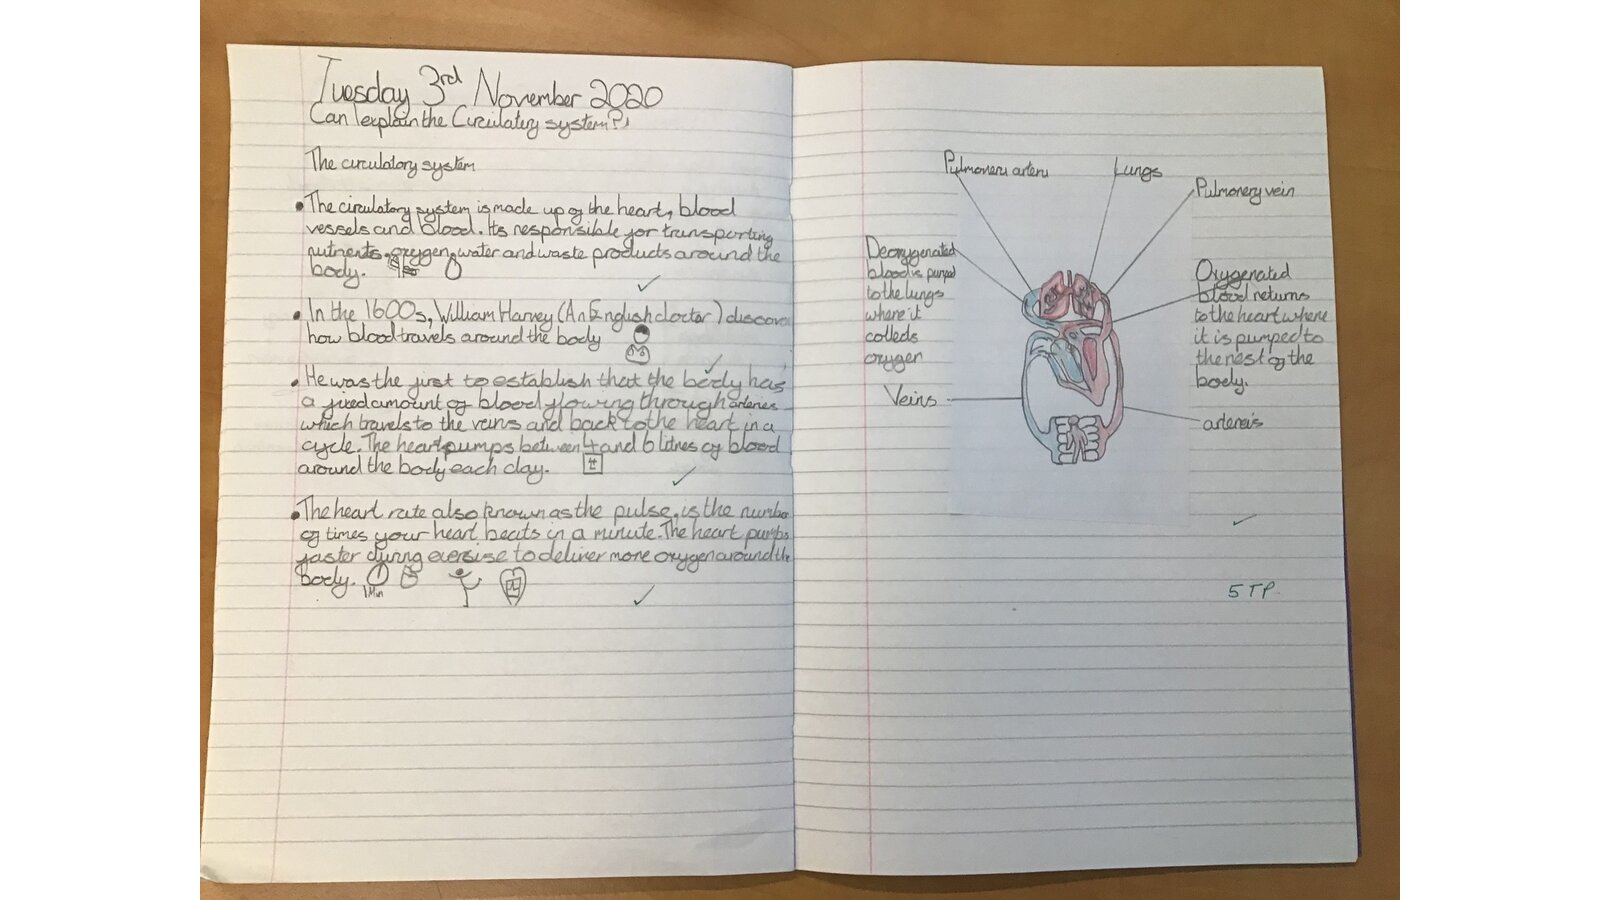 Tuesday 3rd November 2020
Can I explain the Circulatory system?
The circulatory system
• The circulatory system is made up of the heart, blood
vessels and blood. Its responsible for transporting
nutrients, oxygen, water and waste products around the
body.
• In the 1600s, William Harvey (An English doctor) discover
how blood travels around the body
• He was the first to establish that the body has
a fixed amount of blood flowing through arteries
which travels to the veins and back to the heart in a
cycle. The heart pumps between 4 and 6 litres of blood
around the body each day.
• The heart rate also known as the pulse, is the number
of times your heart beats in a minute. The heart pumps
faster during exersise to deliver more oxygen around the
body.
1 Min
Pulmonery artery
Lungs
Pulmonery vein
Deoxygenated
blood is pumped
to the lungs
where it
collects
oxygen
Oxygenated
blood returns
to the heart where
it is pumped to
the rest of the
body.
Veins
arterei's
5 TP